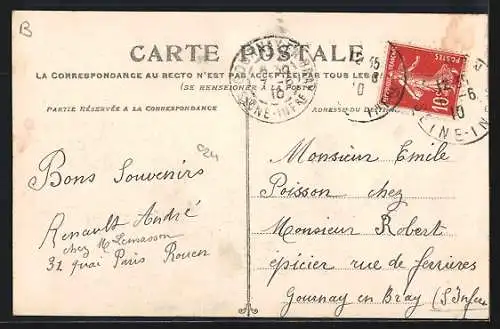 B
CARTE POSTALE
LA CORRESPONDANCE AU RECTO N'EST PAS ACCEPTÉE PAR TOUS LES
(SE RENSEIGNER À LA POSTE
PARTIE RÉSERVÉE A LA CORRESPONDANCE
ADRESSE DU
POSTES
10
SEINE-INF
C24
Bons Souvenirs
Renault André
chez M Lemasson
31 quai Paris Rouen
Monsieur Emile
Poisson chez
Monsieur Robert
épicier rue de ferrières
Gournay en Bray (S. Infre